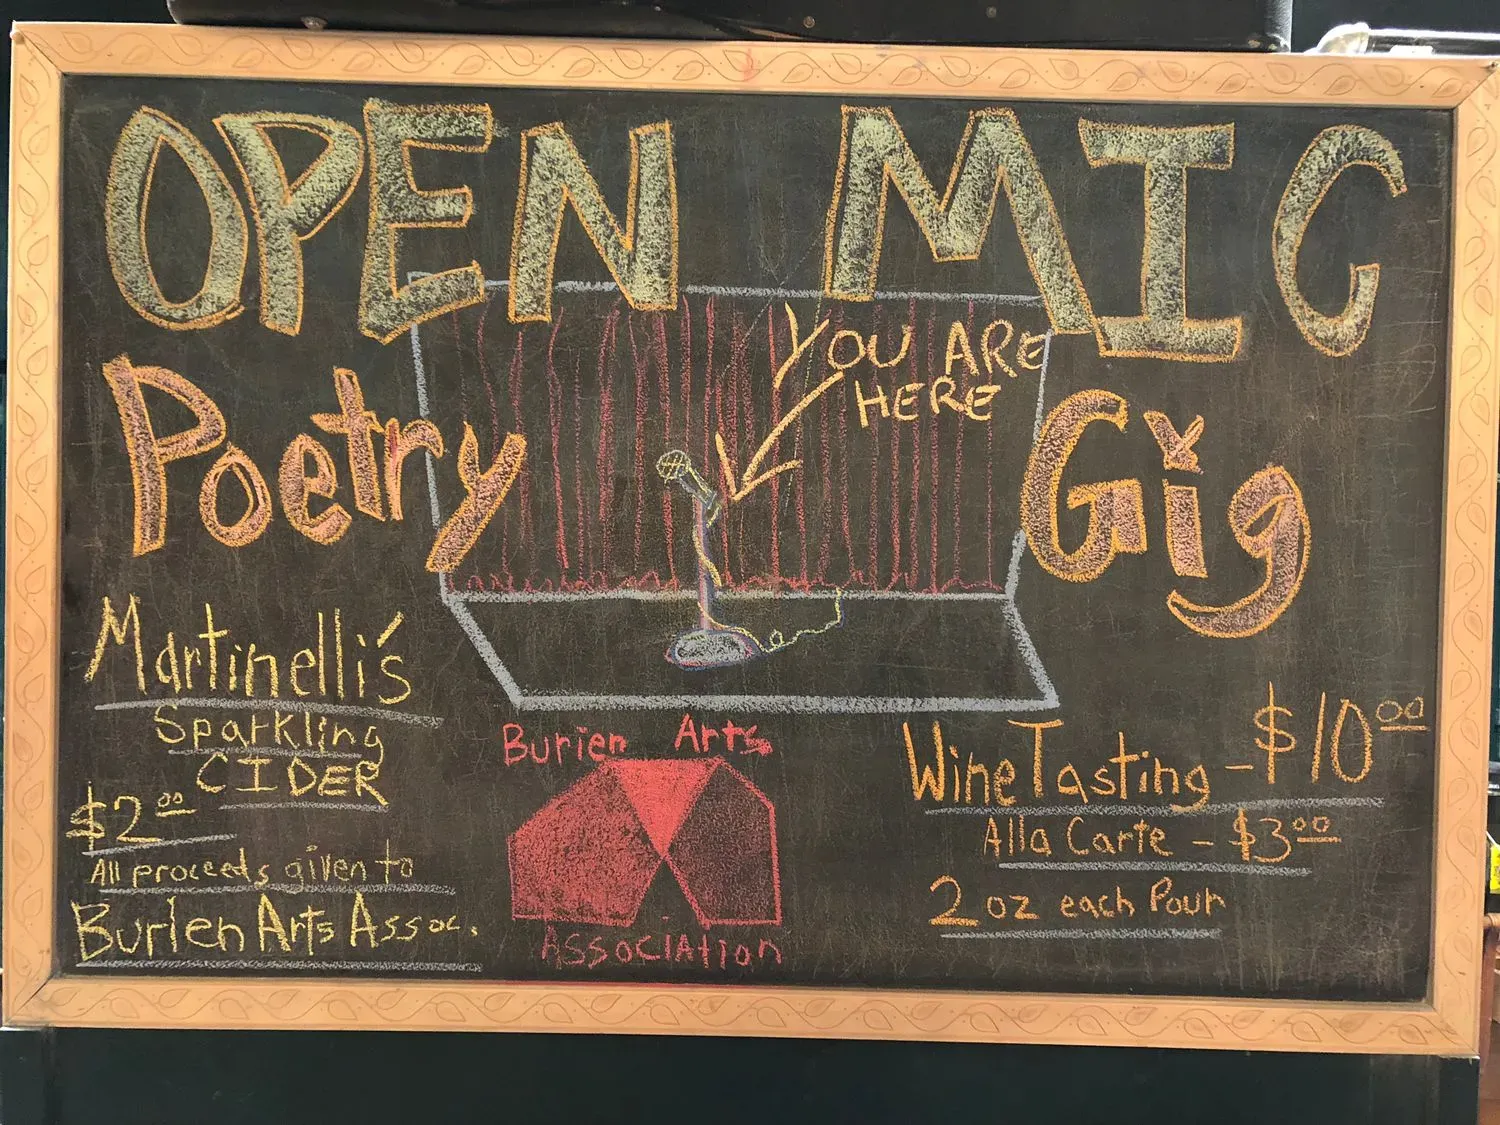 OPEN MIC
YOU ARE
HERE
Poetry Gig
Martinelli's
Sparkling
CIDER
$2.00
All proceeds given to
Burien Arts Assoc.
Burien Arts
ASSOCIATION
Wine Tasting - $10.00
Alla Carte - $3.00
2 oz each Pour